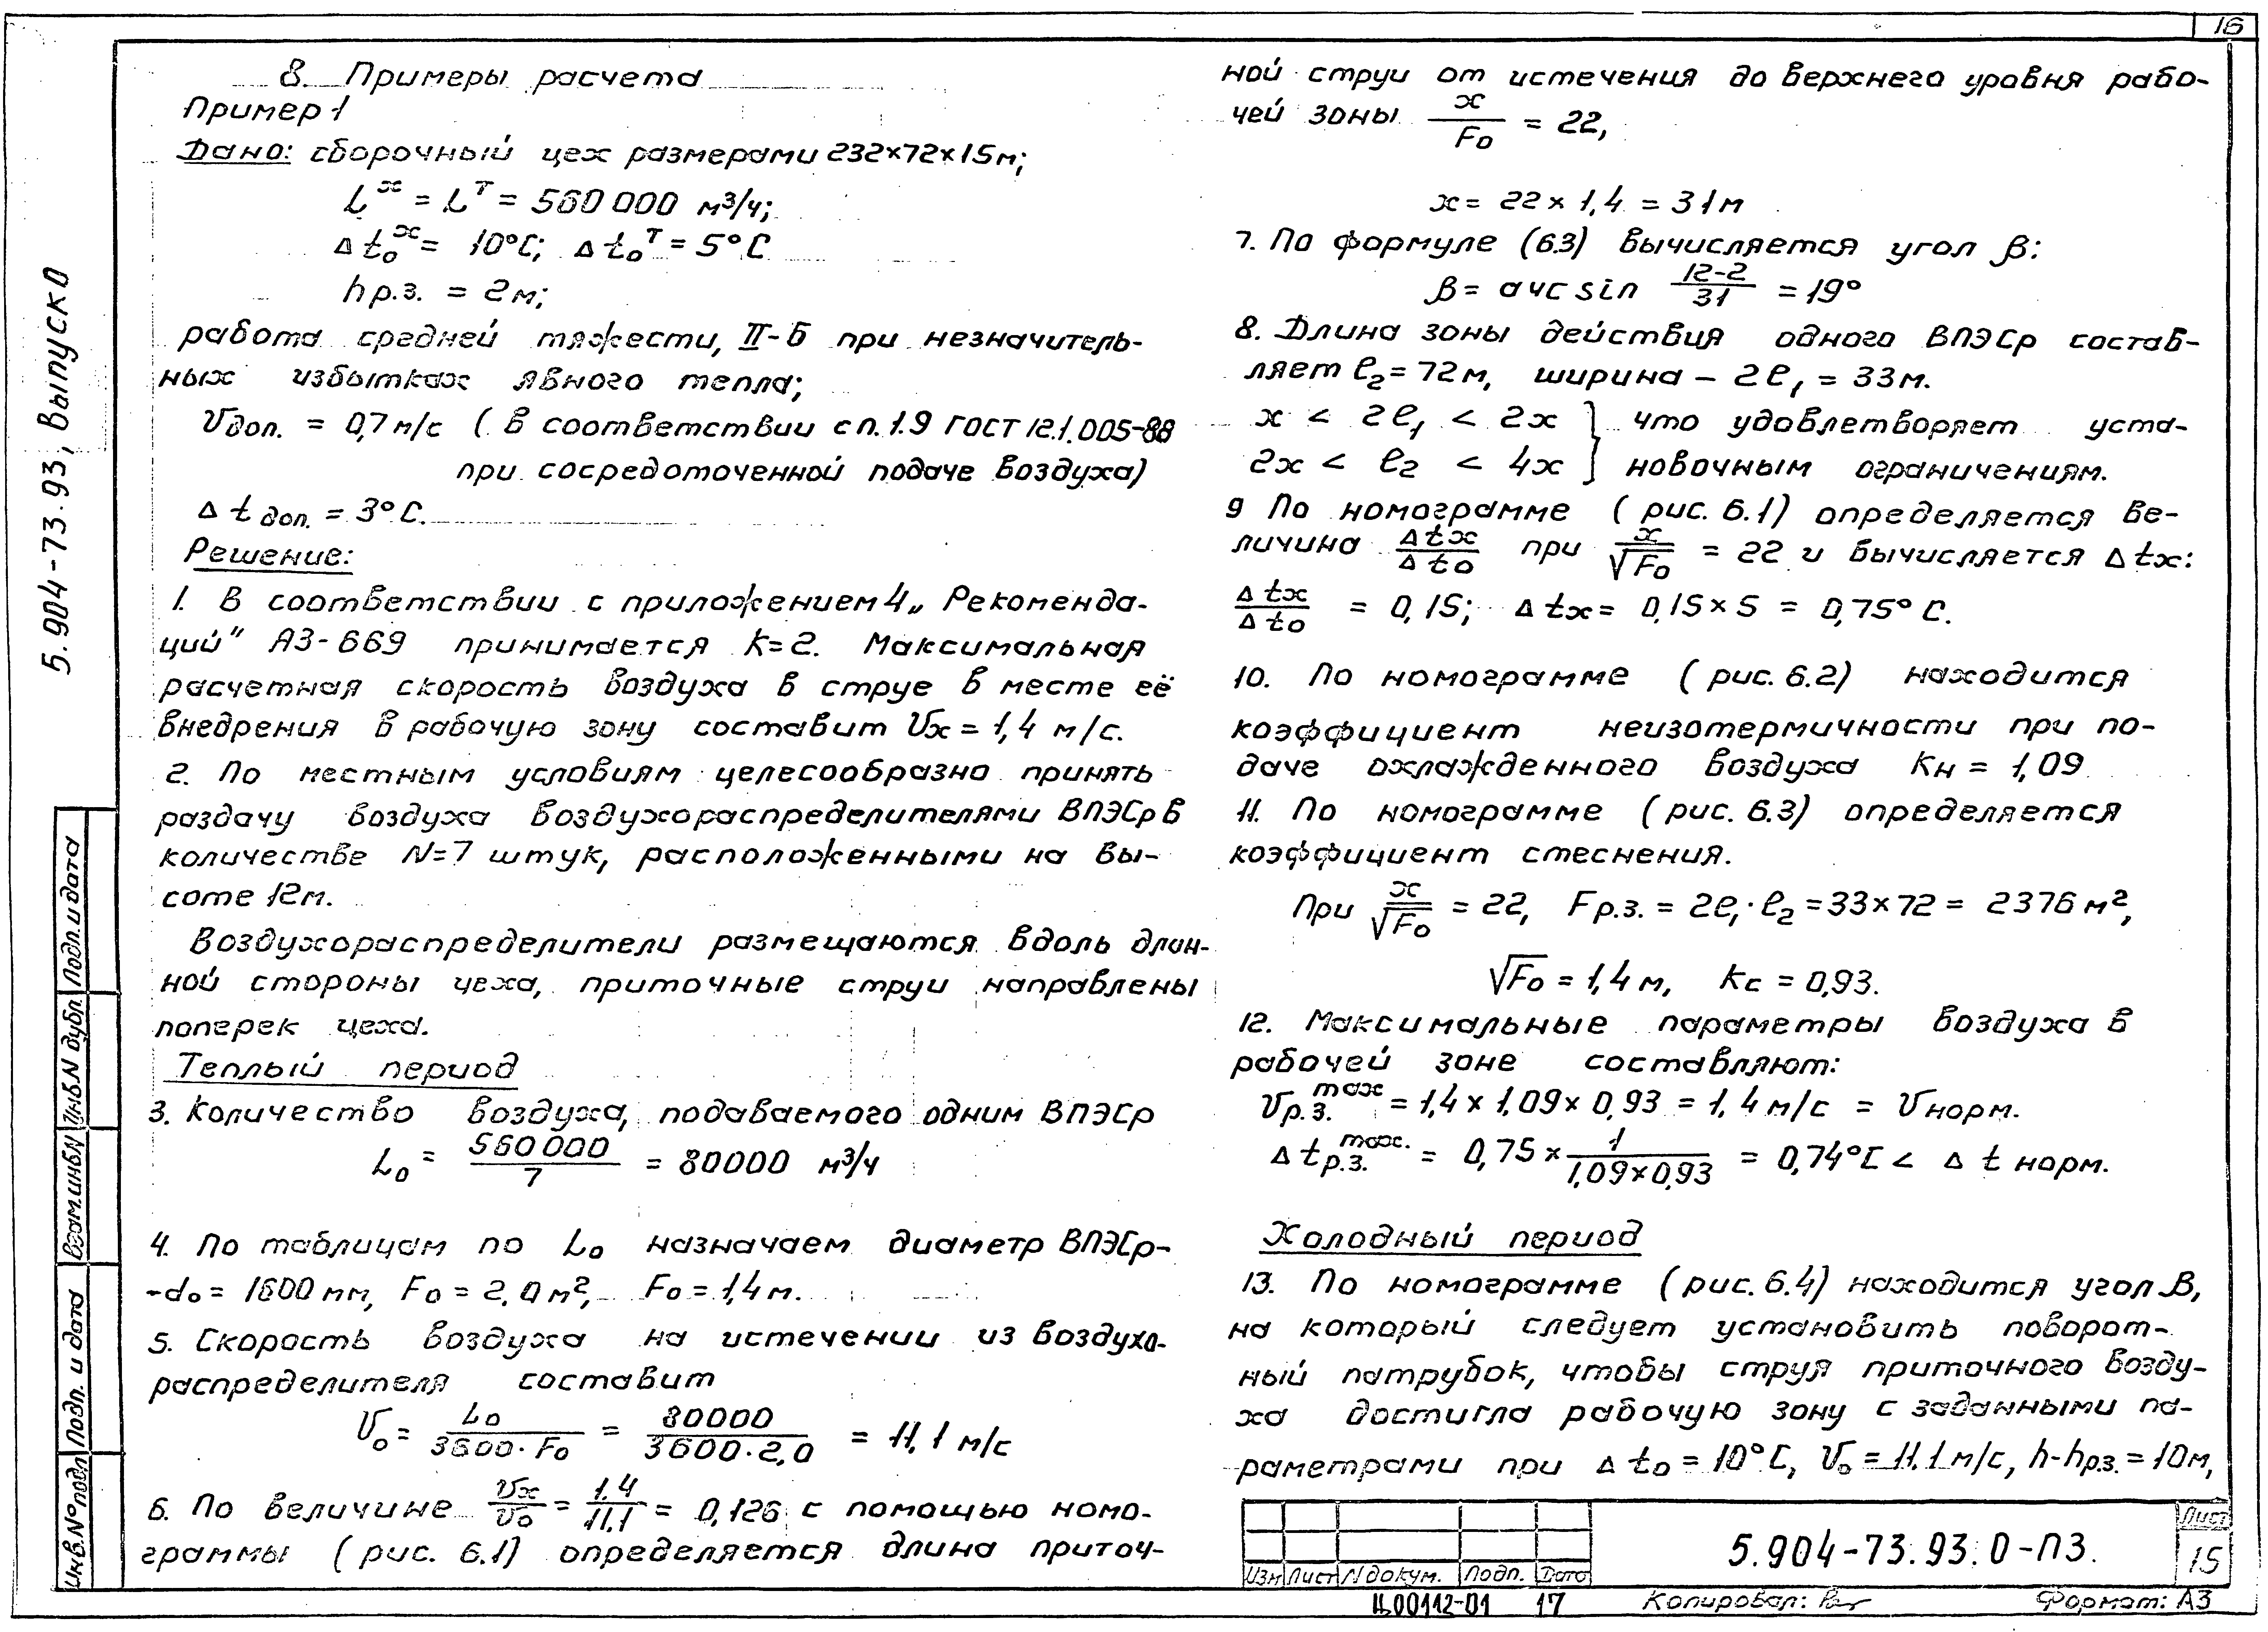 16
8. Примеры расчета
Пример 1
Дано: сборочный цех размерами 232×72×15м;
L^х = L^т = 560 000 м³/ч;
Δt₀^х = 10°С; Δt₀^т = 5°С
hр.з. = 2м;
работа средней тяжести, II-Б при незначитель-
ных избытках явного тепла;
Vдоп. = 0,7 м/с (в соответствии с п.1.9 ГОСТ 12.1.005-88
при сосредоточенной подаче воздуха)
Δt доп. = 3°С.
Решение:
1. В соответствии с приложением 4 „Рекоменда-
ций" АЗ-669 принимается К=2. Максимальная
расчетная скорость воздуха в струе в месте её
внедрения в рабочую зону составит Vх = 1,4 м/с.
2. По местным условиям целесообразно принять
раздачу воздуха воздухораспределителями ВПЭСр в
количестве N=7 штук, расположенными на вы-
соте 12м.
Воздухораспределители размещаются вдоль длин-
ной стороны цеха, приточные струи направлены
поперек цеха.
Теплый период
3. Количество воздуха, подаваемого одним ВПЭСр
L₀ = 560 000 / 7 = 80000 м³/ч
4. По таблицам по L₀ назначаем диаметр ВПЭСр-
-d₀ = 1600 мм, F₀ = 2,0 м², F₀ = 1,4 м.
5. Скорость воздуха на истечении из воздухо-
распределителя составит
V₀ = L₀ / 3600·F₀ = 80000 / 3600·2,0 = 11,1 м/с
6. По величине Vх / V₀ = 1,4 / 11,1 = 0,126 с помощью номо-
граммы (рис. 6.1) определяется длина приточ-
ной струи от истечения до верхнего уровня рабо-
чей зоны х / F₀ = 22,
х = 22 × 1,4 = 31м
7. По формуле (6.3) вычисляется угол β:
β = arcsin 12-2 / 31 = 19°
8. Длина зоны действия одного ВПЭСр состав-
ляет ℓ₂ = 72м, ширина – 2ℓ₁ = 33м.
х < 2ℓ₁ < 2х } что удовлетворяет уста-
2х < ℓ₂ < 4х } новочным ограничениям.
9 По номограмме (рис. 6.1) определяется ве-
личина Δtх / Δt₀ при х / √F₀ = 22 и вычисляется Δtх:
Δtх / Δt₀ = 0,15; Δtх = 0,15 × 5 = 0,75°С.
10. По номограмме (рис. 6.2) находится
коэффициент неизотермичности при по-
даче охлажденного воздуха Кн = 1,09
11. По номограмме (рис. 6.3) определяется
коэффициент стеснения.
При х / √F₀ = 22, Fр.з. = 2ℓ₁·ℓ₂ = 33×72 = 2376 м²,
√F₀ = 1,4 м, Кс = 0,93.
12. Максимальные параметры воздуха в
рабочей зоне составляют:
Vр.з.^max = 1,4 × 1,09 × 0,93 = 1,4 м/с = Vнорм.
Δtр.з.^max. = 0,75 × 1 / 1,09×0,93 = 0,74°С < Δt норм.
Холодный период
13. По номограмме (рис. 6.4) находится угол β,
на который следует установить поворот-
ный патрубок, чтобы струя приточного возду-
ха достигла рабочую зону с заданными па-
раметрами при Δt₀ = 10°С, V₀ = 11,1 м/с, h-hр.з. = 10м,
5.904-73.93, Выпуск 0
Подп. и дата
Инв.N дубл.
Взам.инв.N
Подп. и дата
Инв.N° подл
Изм Лист N докум. Подп. Дата
5.904-73.93.0-ПЗ.
Лист
15
Ц00112-01 17
Копировал:
Формат: А3